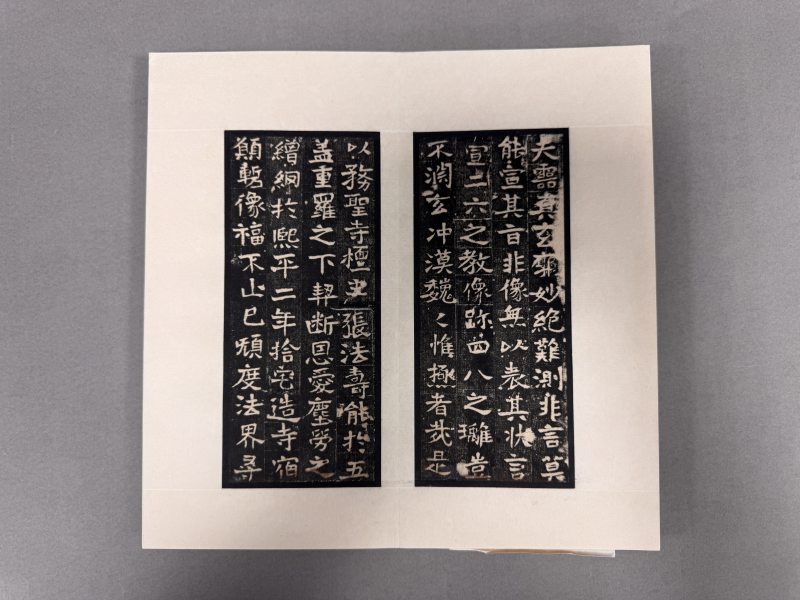 夫靈真玄廓妙絕難測非言莫
能宣其旨非像無以表其狀言
宣二六之教像跡四八之璀豈
不淵玄冲漠魏々惟極者哉是
以務聖寺檀主張法壽能於五
盖重羅之下契断恩愛塵勞之
繒網於熙平二年捨宅造寺宿
願像福不止已度法界尋